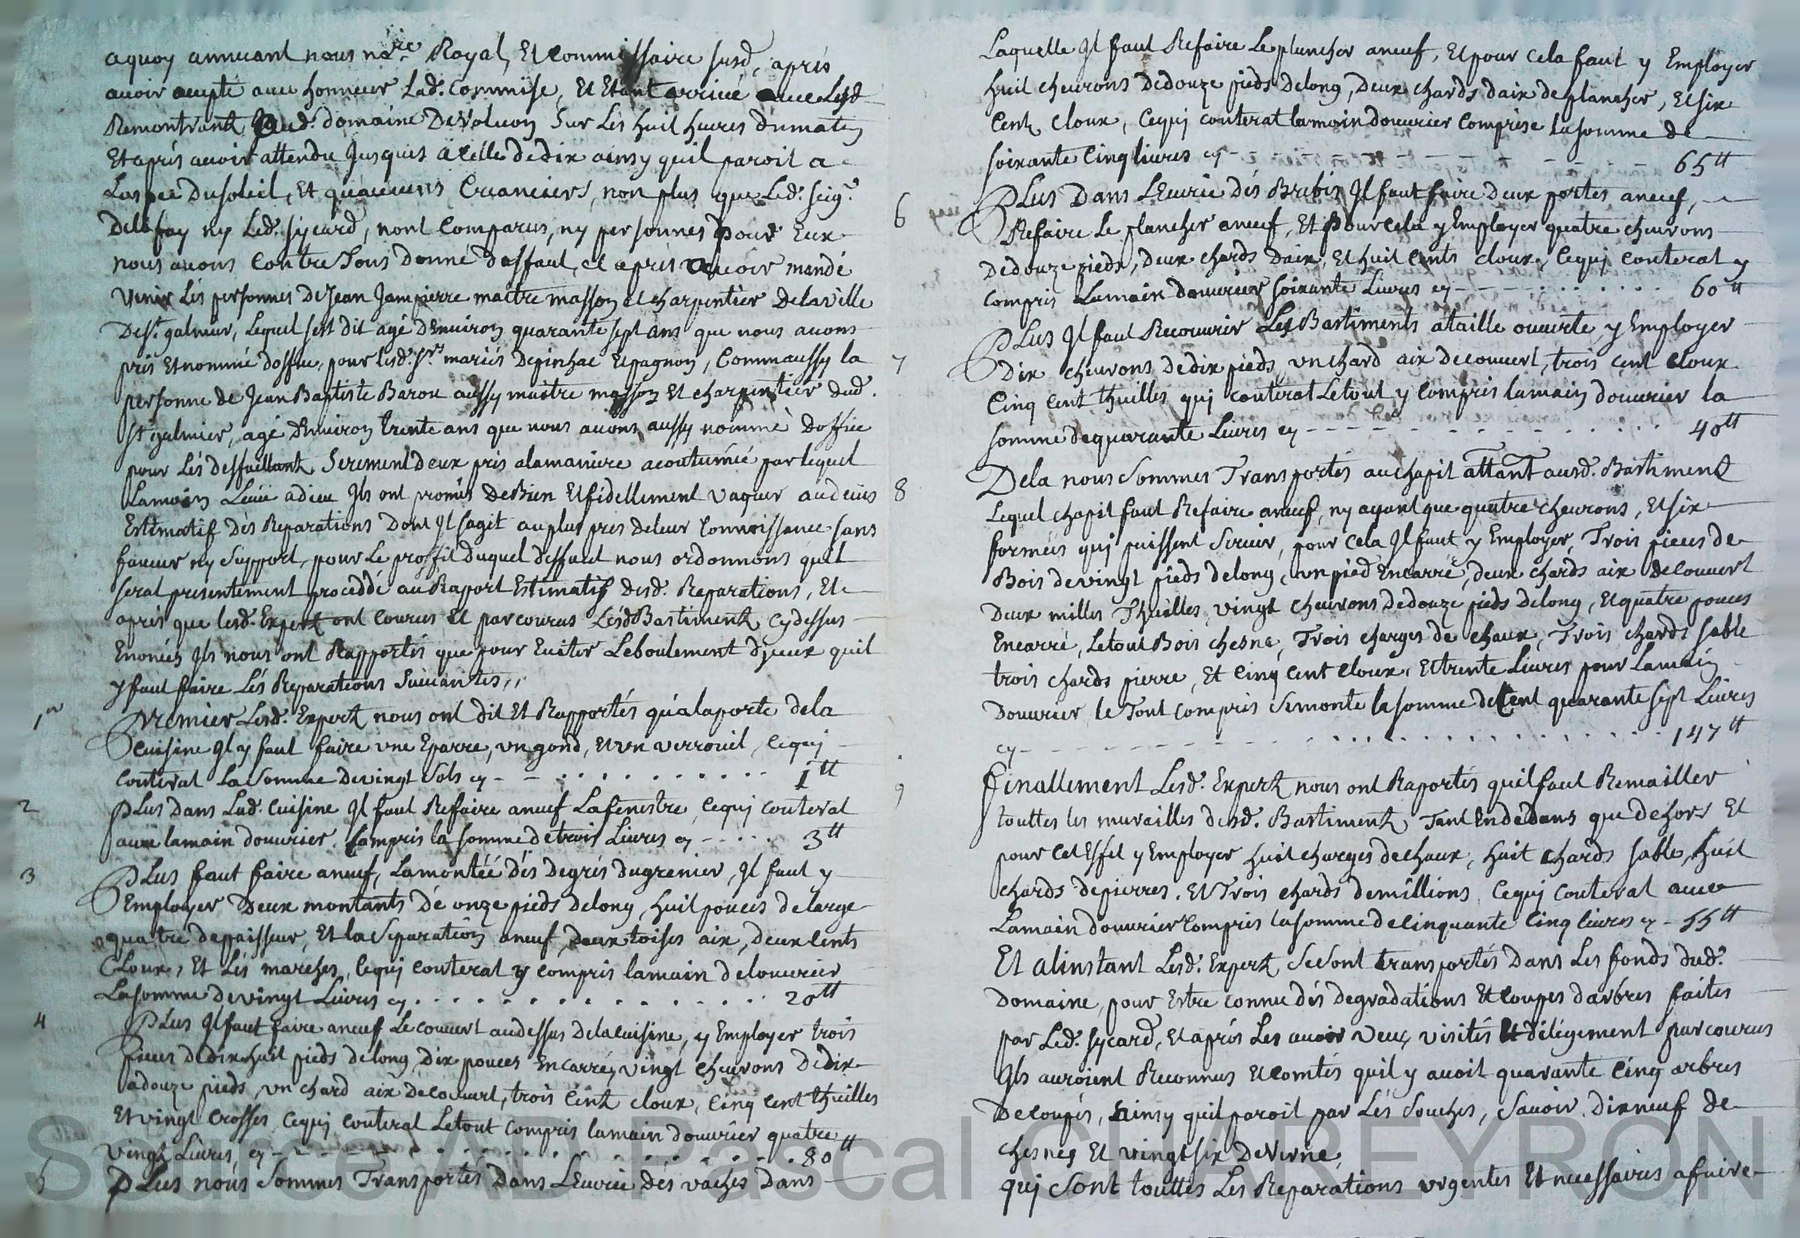 aquoy annuant nous nore Royal, Et Commissaire susd. après
avoir accepté avec honneur Lad. Commise, Et Etant arrivé avec Lesd
Remontrants aud. domaine De Volvon Sur Les huit heures dumatin
Et après avoir attendu Jusques à Celle dedix ainsy quil paroit a
Laspec Dusoleil, Et qu'aucuns Créanciers, non plus que Led. seigr.
Delafay ny Led. sycard, nont Comparus, ny personnes pour Eux
nous avons Contre Tous donné deffaut, et après avoir mandé
Venir Les personnes De Jean Jampierre maître masson et charpentier Delaville
De st. galmier, Lequel sest dit agé D'Environ quarante sept ans que nous avons
pris Et nommé doffice, pour lesd. srs mariés Depinhac Espagnon, Comm'aussy la
personne de Jean Baptiste Barou aussy maitre masson Et charpentier dud.
st. galmier, agé d'Environ trente ans que nous avons aussy nommé d'office
pour Les deffaillants, Serement deux pris alamaniere acoutumée par lequel
Lamain Levée adieu Ils ont promis De Bien Et fidellement vaquer au devis
Estimatif Des Reparations Dont Il sagit au plus près deleur Connoissance sans
faveur ny Support, pour Le proffit duquel deffaut nous ordonnons quil
serat presentement procéddé au Raport Estimatif desd. Reparations, Et
après que lesd. Experts ont Courus Et parcourus Lesd Bastiments Cydessus
Enoncés Ils nous ont Rapportés que pour Eviter Leboulement d'jceux quil
y faut faire Les Reparations Suivantes,,
1er
Premier Lesd. Experts nous ont dit Et Rapportés qu'alaporte dela
Cuisine Il y faut faire une Eparre, un gond, Et un verrouil, Cequy
Couterat La Somme Devingt Sols cy - - . . . . . . . . . 1tt
2
Plus Dans Lad. Cuisine Il faut Refaire aneuf Lafenestre, Cequy Couterat
avec lamain douvrier Compris la somme detrois Livres cy - . . . . 3tt
3
Plus faut faire aneuf, Lamontéé des degrés dugrenier, Il faut y
Employer Deux montants De onze pieds delong, huit pouces de large
quatre depaisseur, Et la Séparation aneuf, deux toises aix, deux Cents
Cloux, Et Les marches, Cequy Couterat y compris lamain delouvrier
La somme Devingt Livres cy . . . . . . . . . . . . . . . . 20tt
4
Plus Il faut faire aneuf Le Couvert audessus delacuisine, y Employer trois
pieces dedixhuit pieds delong Dix pouces Encarré, vingt chevrons De dix
adouze pieds, un chard aix decouvert, trois Cents cloux, Cinq Cent thuilles
Et vingt Crosses, Cequy Couterat Letout Compris lamain douvrier quatre
vingts Livres, cy - - - . . . . . . . . . . . . . . . . . . 80tt
5
Plus nous Sommes Transportés Dans L'Ecurie des vaches dans
Laquelle Il faut Refaire Le plancher aneuf, Et pour Cela faut y Employer
huit chevrons Dedouze pieds delong, Deux chards d'aix de plancher, Et six
Cents Cloux, Cequy Couterat lamain douvrier Comprise la somme de
soixante Cinq livres cy - - - - - - - - - - - - 65tt
6
Plus Dans L'Ecurie des Brebis Il faut faire Deux portes aneuf,
Refaire Le plancher aneuf, Et pour Cela y Employer quatre chevrons
Dedouze pieds, Deux chards D'aix, Et huit Cents cloux, Cequy Couterat y
Compris Lamain douvrier soixante Livres cy - - - - . . . . . . . 60tt
7
Plus Il faut Recouvrir Les Bastiments ataille ouverte y Employer
Dix chevrons dedix pieds, un chard aix decouvert, trois Cent cloux
Cinq Cent thuilles qui Couterat Letout y Compris lamain douvrier la
somme dequarante Livres cy - - - - - - - - . . . . . . . 40tt
8
Dela nous Sommes Transportés auchapit attant ausd. Bastiments
Lequel chapit faut Refaire aneuf, ny ayant que quatre chevrons, Et six
formées qui puissent Servir, pour Cela Il faut y Employer, Trois pieces de
Bois devingt pieds delong, un pied Encarré, deux chards aix decouvert
Deux milles Thuilles, vingt chevrons Dedouze pieds Delong, Et quatre pouces
Encarré, Letout Bois chesne, Trois charges de chaux, Trois chards sable
trois chards pierre, Et Cinq Cent Cloux, Et trente Livres pour Lamain
Douvrier, le Tout Compris Semonte la somme de Cent quarante sept Livres
cy - - - - - - - - - . . . . . . . . . . . . . . . 147tt
9
Finallement Lesd. Experts nous ont Raportés quil faut Remailler
touttes les murailles desd. Bastiments, Tant En dedans que dehors Et
pour Cet Effet y Employer huit charges dechaux, huit chards sable, huit
chards depierres, Et Trois chards demillions, Cequy Couterat avec
Lamain douvrier Compris la somme de Cinquante Cinq livres cy - 55tt
Et alinstant Lesd. Experts Se Sont transportés Dans Les fonds dud.
Domaine, pour Estre Connu des degradations Et Coupes d'arbres faites
par Led. sycard, Et après Les avoir Veu, visités Et diligement parcourus
Ils auroient Reconnus Et Comtés quil y avoit quarante Cinq arbres
De coupés, ainsy quil paroit par Les Souches, Savoir dixneuf de
chesnes Et vingt six De Verne,
qui Sont touttes Les Reparations urgentes Et necessaires afaire
Source AD Pascal CHAREYRON